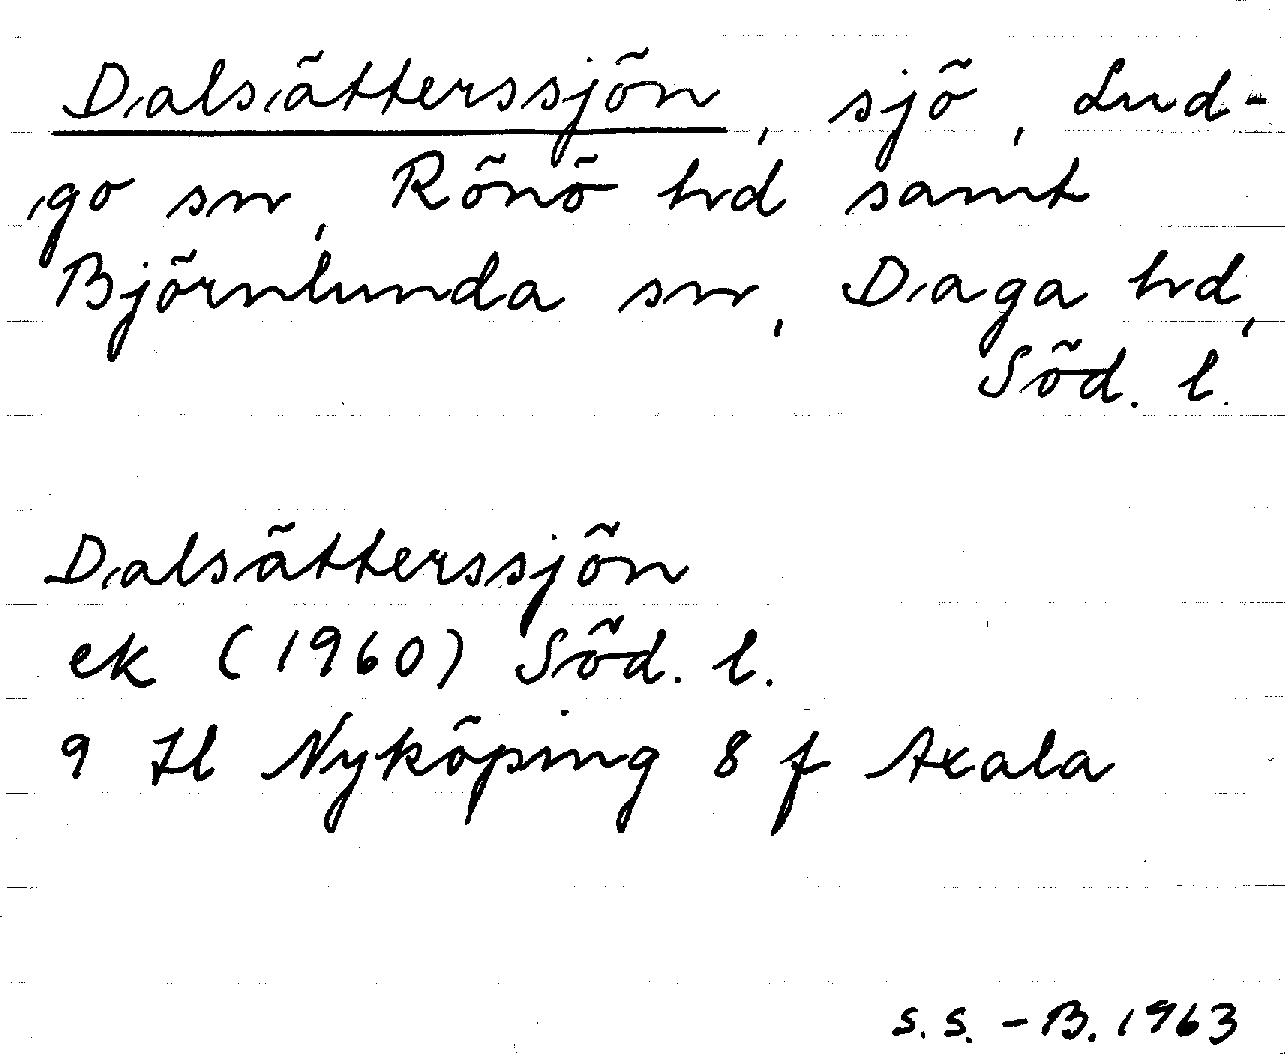 Dalsätterssjön, sjö, Lud-
go sn, Rönö hd samt
Björnlunda sn, Daga hd,
Söd. l.
Dalsätterssjön
ek (1960) Söd. l.
9 H Nyköping 8 f Axala
S.S. - B. 1963